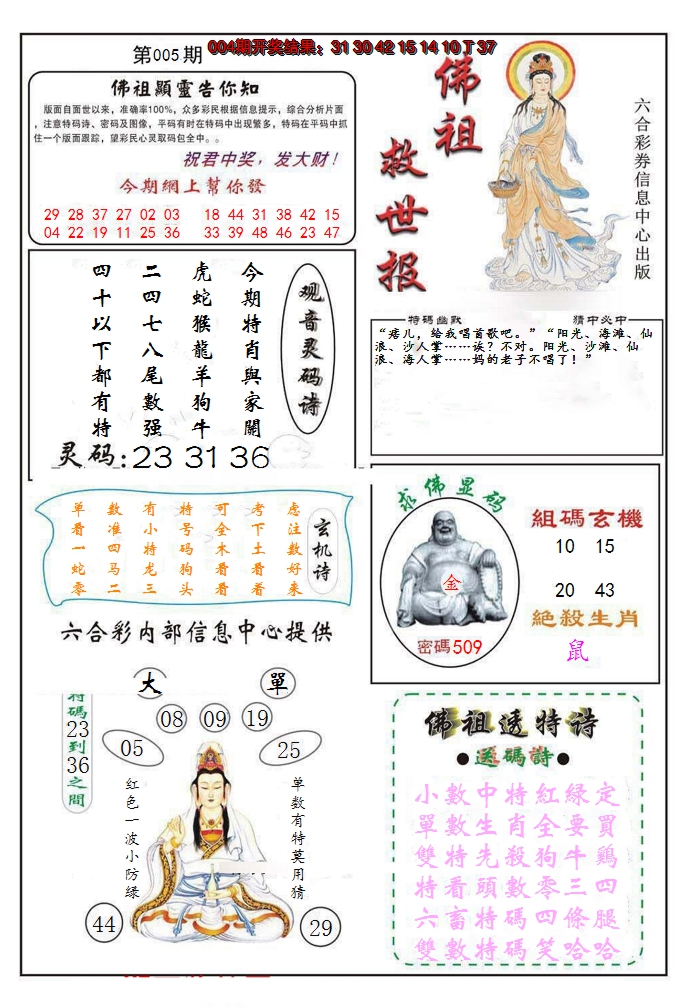 第005期
004期开奖结果：31 30 42 15 14 10 T 37
佛祖顯靈告你知
版面自面世以来，准确率100%，众多彩民根据信息提示，综合分析片面
，注意特码诗、密码及图像，平码有时在特码中出现繁多，特码在平码中抓
住一个版面跟踪，望彩民心灵取码包全中。。
祝君中奖，发大财！
今期網上幫你發
29 28 37 27 02 03 18 44 31 38 42 15
04 22 19 11 25 36 33 39 48 46 23 47
佛祖
救世报
六合彩券信息中心出版
观音灵码诗
今期特肖與家關
虎蛇猴龍羊狗牛
二四七八尾數强
四十以下都有特
灵码:23 31 36
特码幽默
猜中必中
“痞儿，给我唱首歌吧。”“阳光、海滩、仙
浪、沙人掌……诶？不对。阳光、沙滩、仙
浪、海人掌……妈的老子不唱了！”
玄机诗
虑注数好来
考下土看着
可全木看看
特号码狗头
有小特龙三
数准四马二
单看一蛇零
六合彩内部信息中心提供
求佛显码
金
密碼509
組碼玄機
10 15
20 43
絶殺生肖
鼠
大
單
特碼23到36之間
08 09 19
05
25
红色一波小防绿
单数有特莫用猜
44
29
佛祖透特诗
●送碼詩●
小數中特紅緑定
單數生肖全要買
雙特先殺狗牛鷄
特看頭數零三四
六畜特碼四條腿
雙數特碼笑哈哈